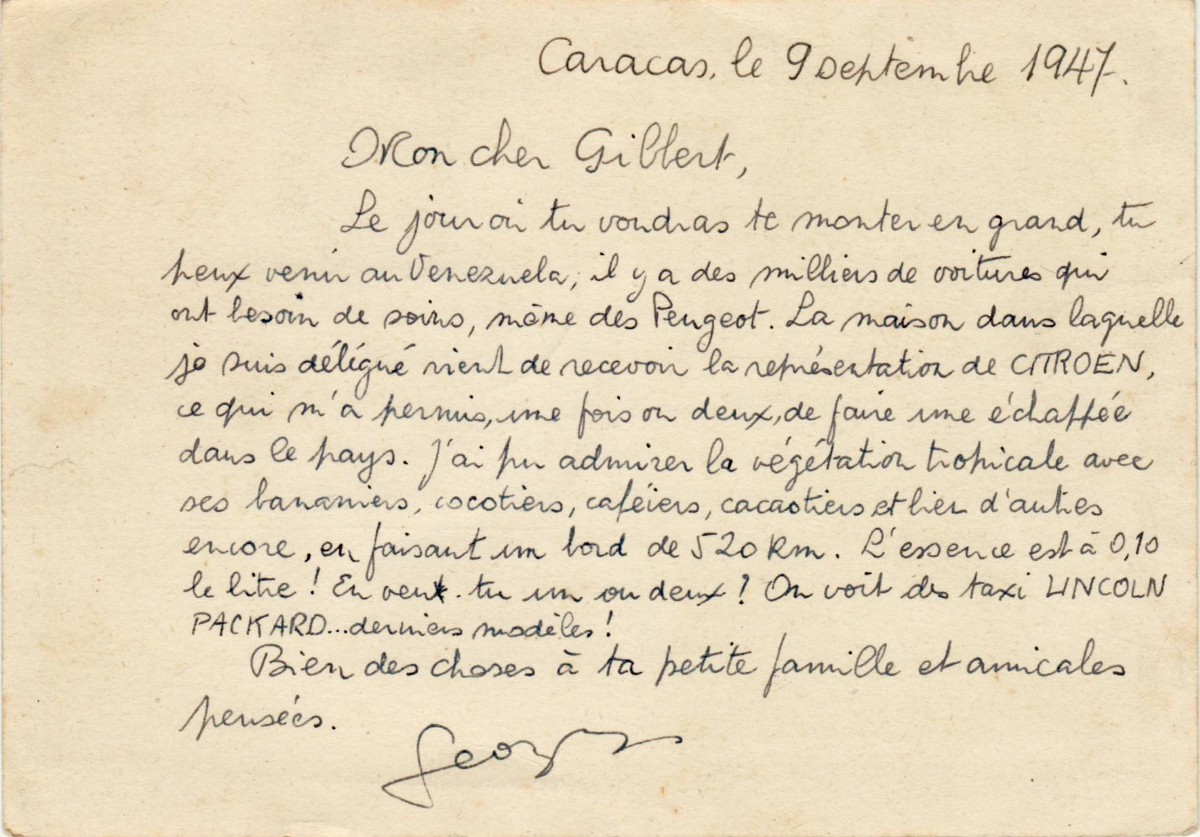 Caracas, le 9 septembre 1947.
Mon cher Gilbert,
Le jour où tu voudras te monter en grand, tu
peux venir au Venezuela, il y a des milliers de voitures qui
ont besoin de soins, même des Peugeot. La maison dans laquelle
je suis délégué vient de recevoir la représentation de CITROEN,
ce qui m'a permis, une fois ou deux, de faire une échappée
dans le pays. J'ai pu admirer la végétation tropicale avec
ses bananiers, cocotiers, caféiers, cacaotiers et bien d'autres
encore, en faisant un bord de 520 Km. L'essence est à 0,10
le litre ! En veux-tu un ou deux ? On voit des taxi LINCOLN
PACKARD...derniers modèles !
Bien des choses à ta petite famille et amicales
pensées.
Georges